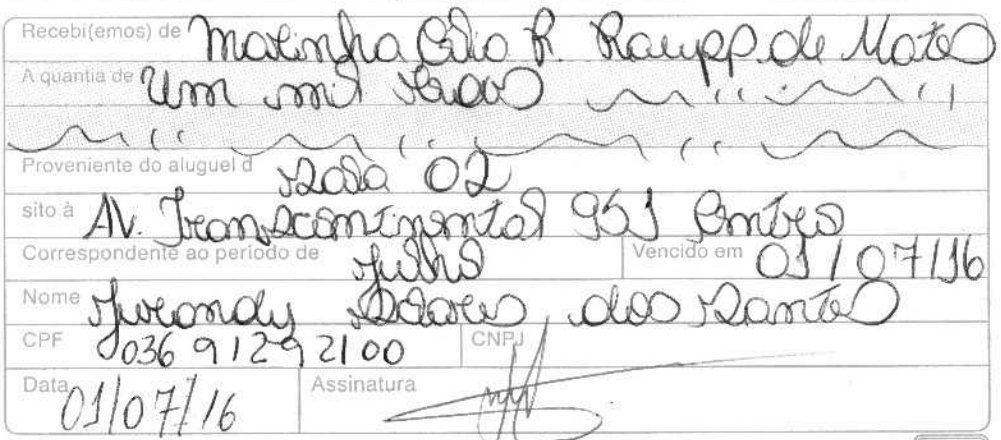 Recebi(emos) de Marinha R. Raupp de Matos
A quantia de Um mil Reais
Proveniente do aluguel d Sala 02
sito à AV. Transcontinental 951 Centro
Correspondente ao período de Julho Vencido em 01/07/16
Nome Jurandy Soares dos Santos
CPF 036 912 92100 CNPJ
Data 01/07/16 Assinatura